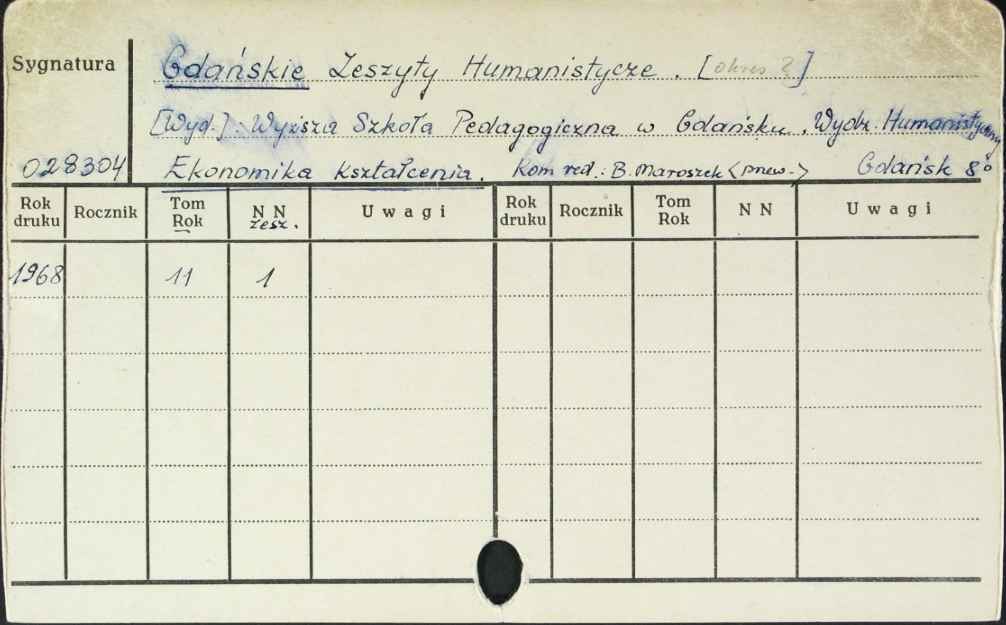 Sygnatura
Gdańskie Zeszyty Humanistycze. [okres]
[Wyd.]: Wyższa Szkoła Pedagogiczna w Gdańsku. Wydz. Humanistyczny
028304 Ekonomika kształcenia. Kom red.: B. Maroszek <przew.> Gdańsk 8°
Rok druku Rocznik Tom Rok N N zesz. Uwagi Rok druku Rocznik Tom Rok N N Uwagi
1968 11 1